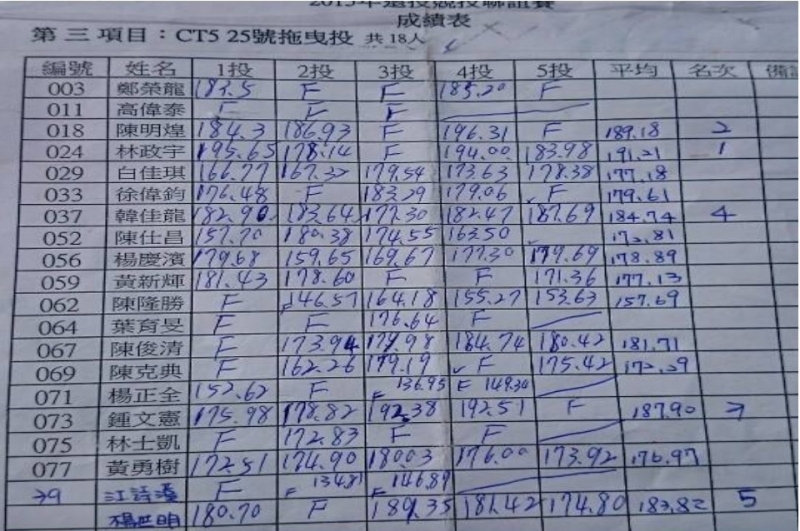 2015年遠投競技聯誼賽
成績表
第三項目：CT5 25號拖曳投 共18人
編號 姓名 1投 2投 3投 4投 5投 平均 名次
003 鄭榮龍 183.5 F F 185.20 F
011 高偉泰 F F F
018 陳明煌 184.3 186.93 F 196.31 F 189.18 2
024 林政宇 195.65 178.14 F 194.00 183.98 191.21 1
029 白佳琪 166.77 167.32 179.54 173.63 178.38 177.18
033 徐偉鈞 176.48 F 183.29 179.06 F 179.61
037 韓佳龍 182.90 183.64 177.30 182.47 187.69 184.74 4
052 陳仕昌 157.70 180.38 174.55 163.50
056 楊慶濱 179.68 159.65 169.67 177.30 179.69 178.89
059 黃新輝 181.43 178.60 F F 171.36 177.13
062 陳隆勝 F 146.57 164.18 155.27 153.63 157.69
064 葉育旻 F F 176.64 F
067 陳俊清 F 173.94 179.98 184.74 180.42 181.71
069 陳克典 F 162.26 179.19 F 175.42 172.29
071 楊正全 152.62 F F 136.95 F 149.30
073 鍾文憲 175.98 178.82 192.38 192.51 F 187.90
075 林士凱 F 172.83 F F
077 黃勇樹 172.51 174.90 180.03 176.00 173.92 176.97
79 F F 134.81 F 146.89
180.70 F 189.35 181.42 174.80 183.82 5